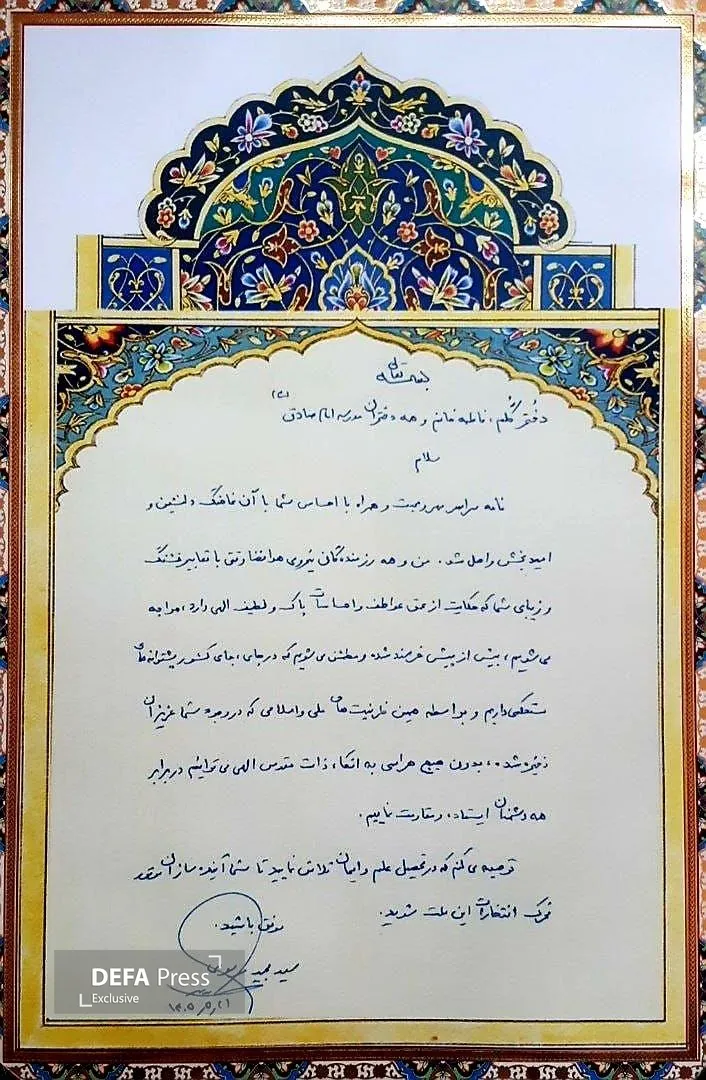 بسمه تعالی
دختر گلم، فاطمه خانم و همه دختران مدرسه امام صادق (ع)
سلام
نامه سراسر مهر و محبت و همراه با احساس شما با آن دلنشین و
امیدبخش واصل شد. من و همه رزمندگان نیروی هوافضا وقتی با تعابیر قشنگ
و زیبای شما که حکایت از عمق عواطف و احساسات پاک و لطیف الهی دارد، مواجه
می‌شویم، بیش از پیش خرسند شده و مطمئن می‌شویم که در جای، جای کشور پشتوانه‌های
مستحکمی داریم و بواسطه همین ظرفیت‌های ملی و اسلامی که در وجود شما عزیزان
ذخیره شده، بدون هیچ هراسی به اتکاء ذات مقدس الهی می‌توانیم در برابر
همه دشمنان ایستاده و مقاومت نماییم.
توصیه می‌کنم که در تحصیل علم و ایمان تلاش نمایید تا شما آینده‌سازان
افتخارات این ملت شوید.
موفق باشید.
سید مجید موسوی
DEFA Press
Exclusive